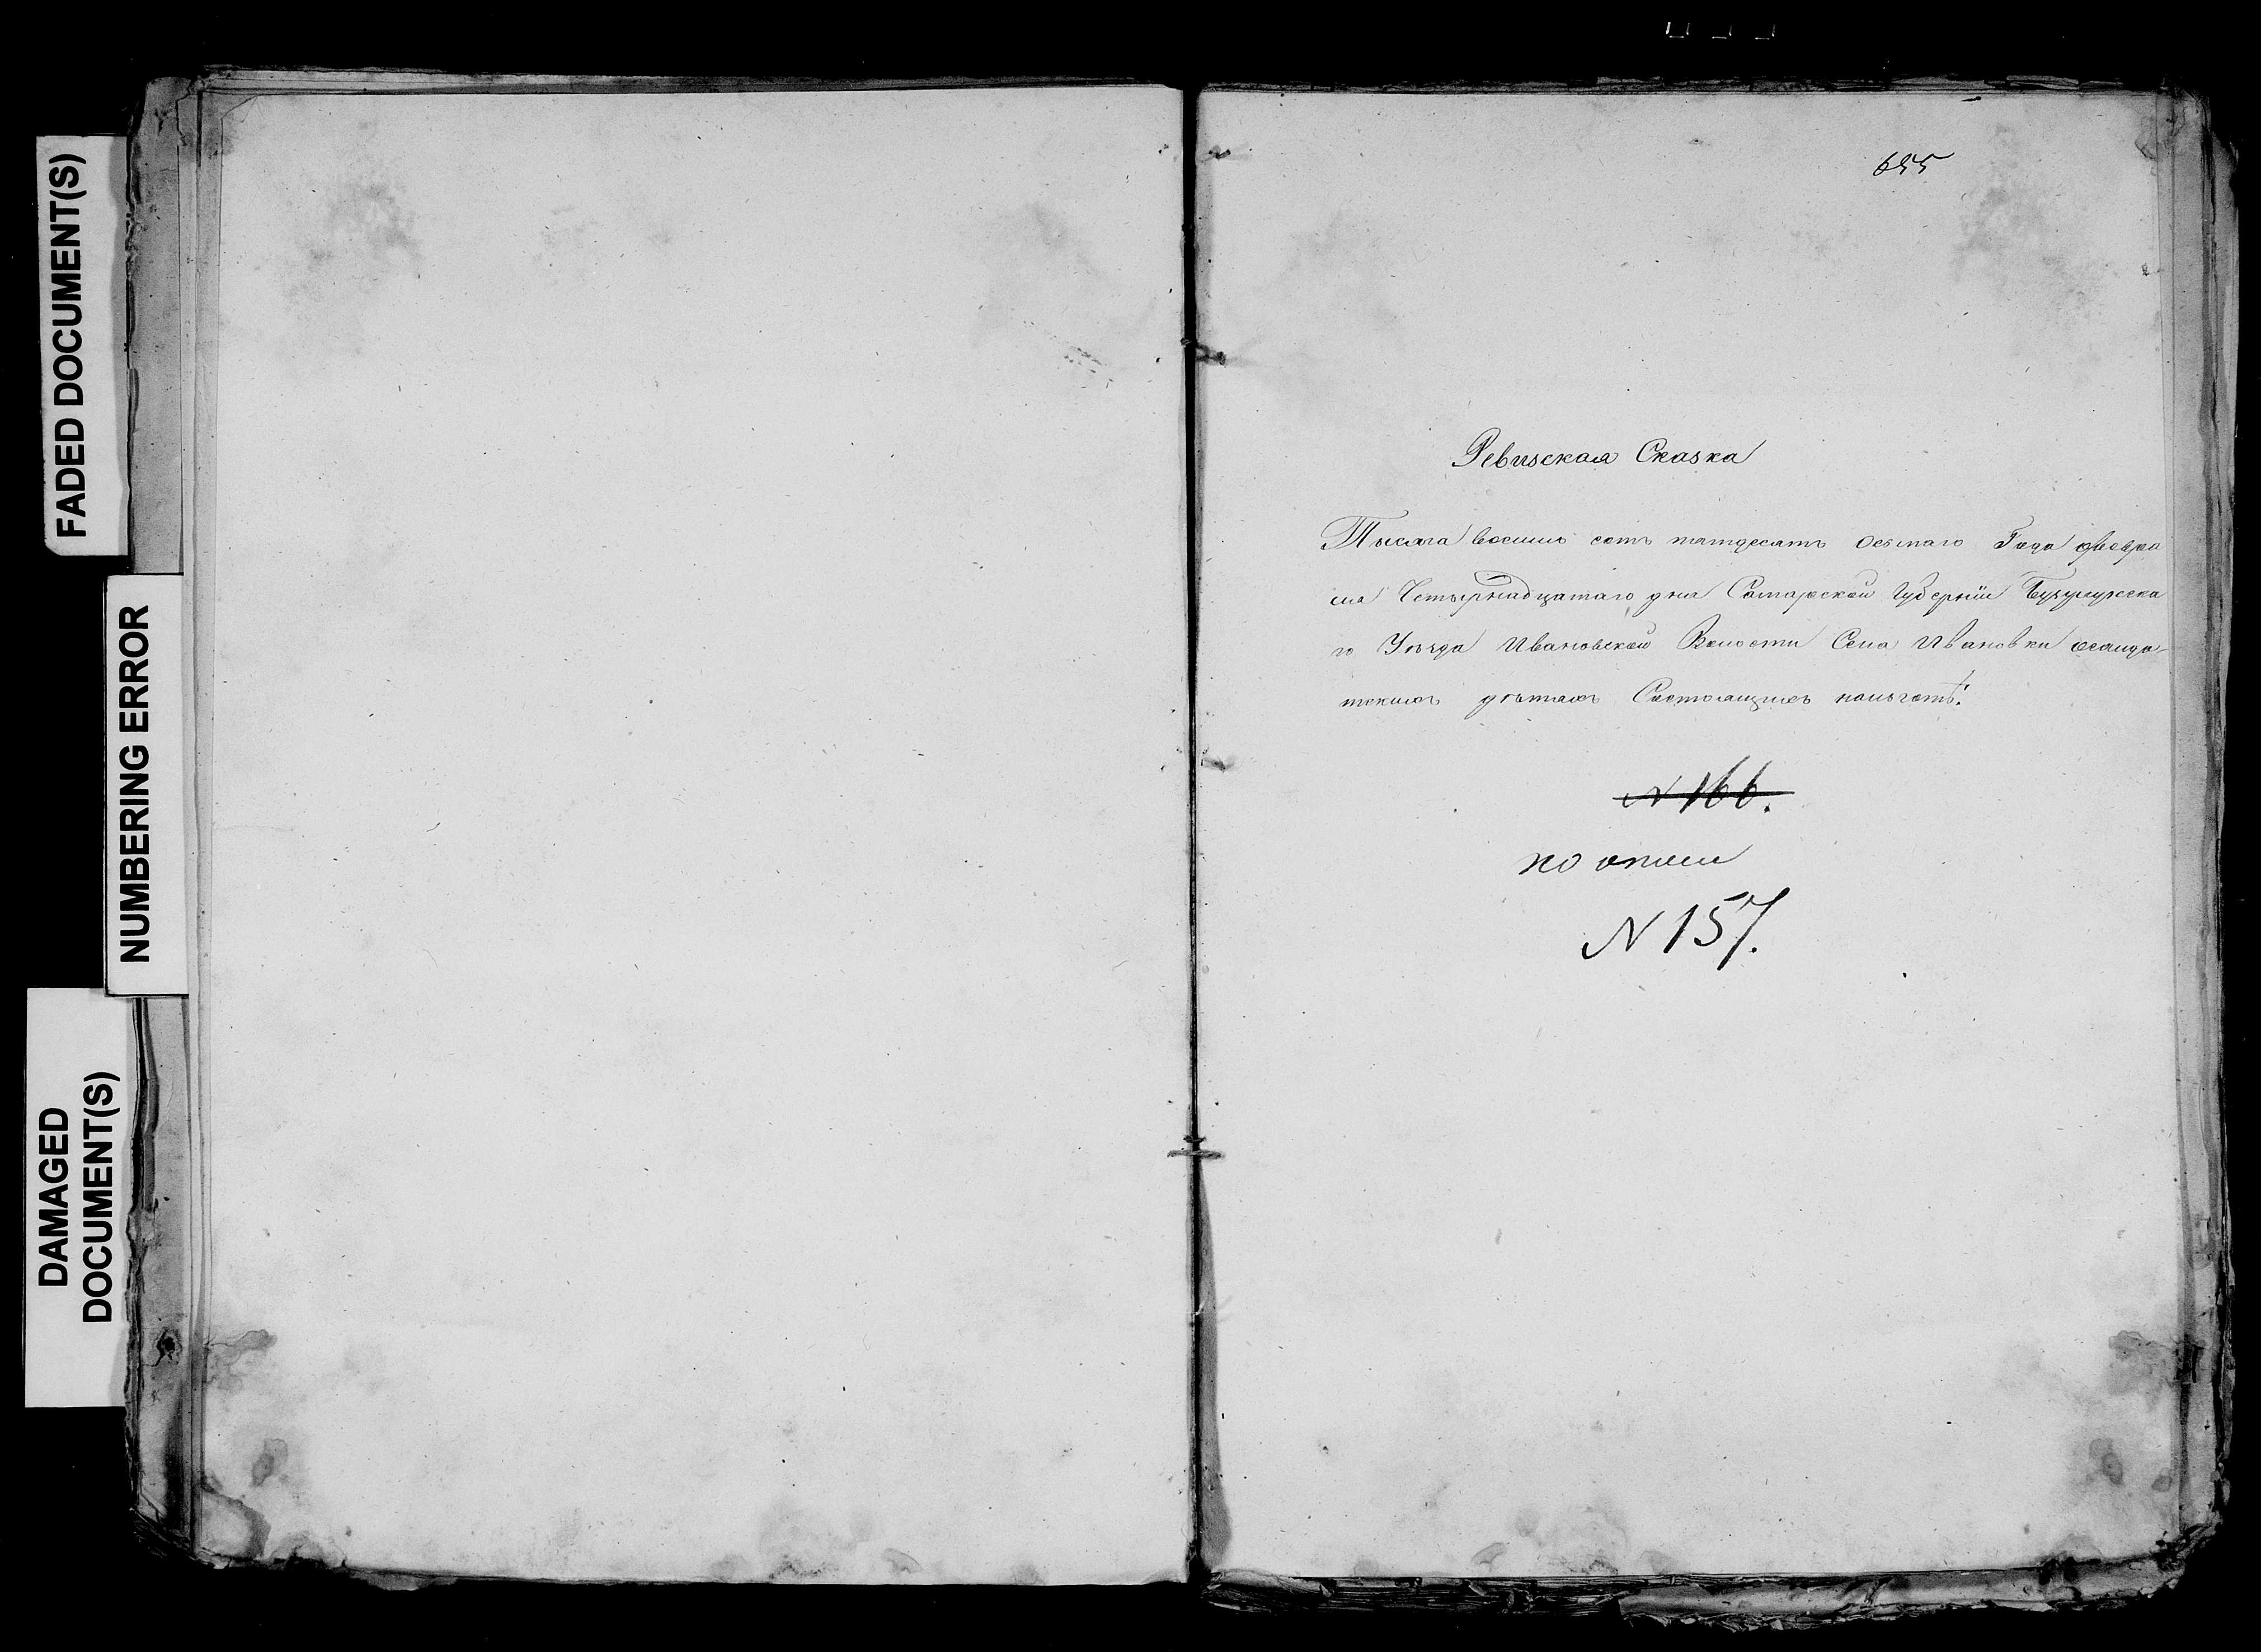 FADED DOCUMENT(S)
NUMBERING ERROR
DAMAGED
DOCUMENT(S)
655
Ревизская Сказка
Тысяча восимь сотъ пятдесятъ осьмаго Года февра
ля Четырнадцатаго дня Самарской Губернiи Бузулукска
го Уѣзда Ивановской Волости Села Ивановки о солда-
тскихъ дѣтяхъ Состоящихъ
N 166.
по описи
N 157.